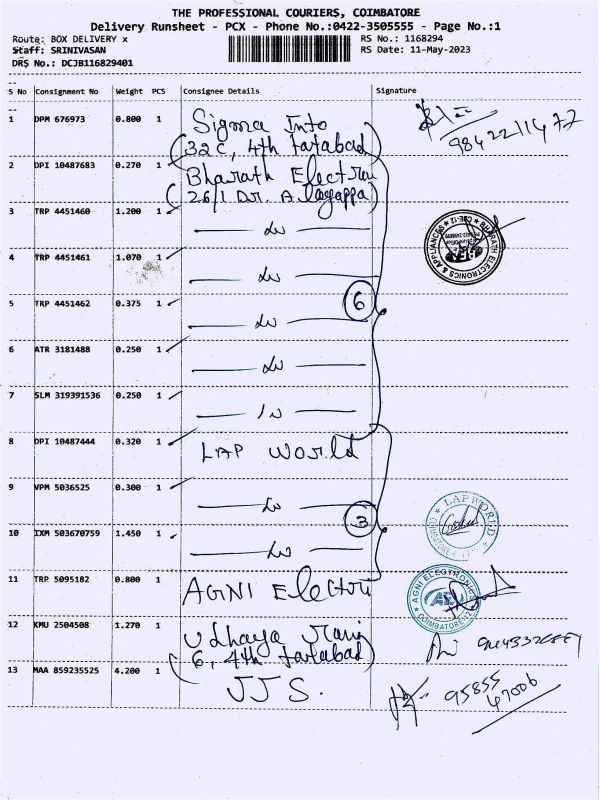 THE PROFESSIONAL COURIERS, COIMBATORE
Delivery Runsheet - PCX - Phone No.:0422-3505555 - Page No.:1
Route: BOX DELIVERY x RS No.: 1168294
Staff: SRINIVASAN RS Date: 11-May-2023
DRS No.: DCJB116829401
S No Consignment No Weight PCS Consignee Details Signature
1 DPM 676973 0.800 1 Sigma Info
(32C, 4th tatabad) 9842211477
2 DPI 10487683 0.270 1 Bharath Electron
(26/1 Dr. Alagappa)
3 TRP 4451460 1.200 1
BHARATH ELECTRONICS & APPLIANCES CBE-12
4 TRP 4451461 1.070 1
5 TRP 4451462 0.375 1
6
6 ATR 3181488 0.250 1
7 SLM 319391536 0.250 1
8 DPI 10487444 0.320 1 LAP World
9 VPM 5036525 0.300 1
3
LAP WORLD
10 IXM 503670759 1.450 1
11 TRP 5095182 0.800 1 AGNI Electron
AGNI ELECTRONICS COIMBATORE-12
12 KMU 2504508 1.270 1 Udhaya
(6, 4th tatabad)
13 MAA 859235525 4.200 1 JJS. 95855
67006